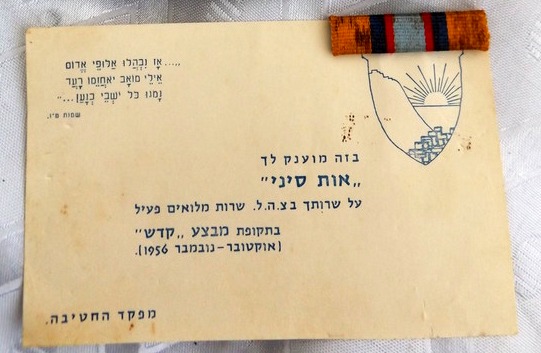 „....אָז נִבְהֲלוּ אַלּוּפֵי אֱדוֹם
אֵילֵי מוֹאָב יֹאחֲזֵמוֹ רָעַד
נָמֹגוּ כֹּל יֹשְׁבֵי כְנָעַן..."
שמות ט"ו.
בזה מוענק לך
„אות סיני"
על שרותך בצ.ה.ל. שרות מלואים פעיל
בתקופת מבצע „קדש"
(אוקטובר-נובמבר 1956).
מפקד החטיבה.